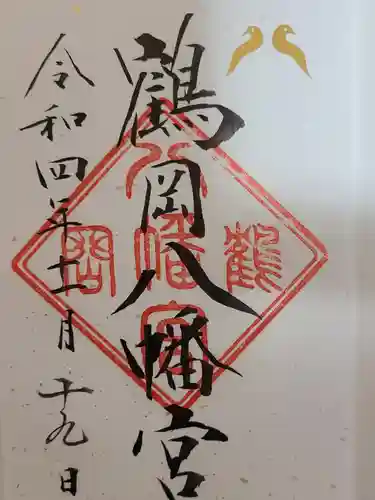 鶴岡八幡宮
令和四年十一月十九日
鶴
八
幡
宮
岡